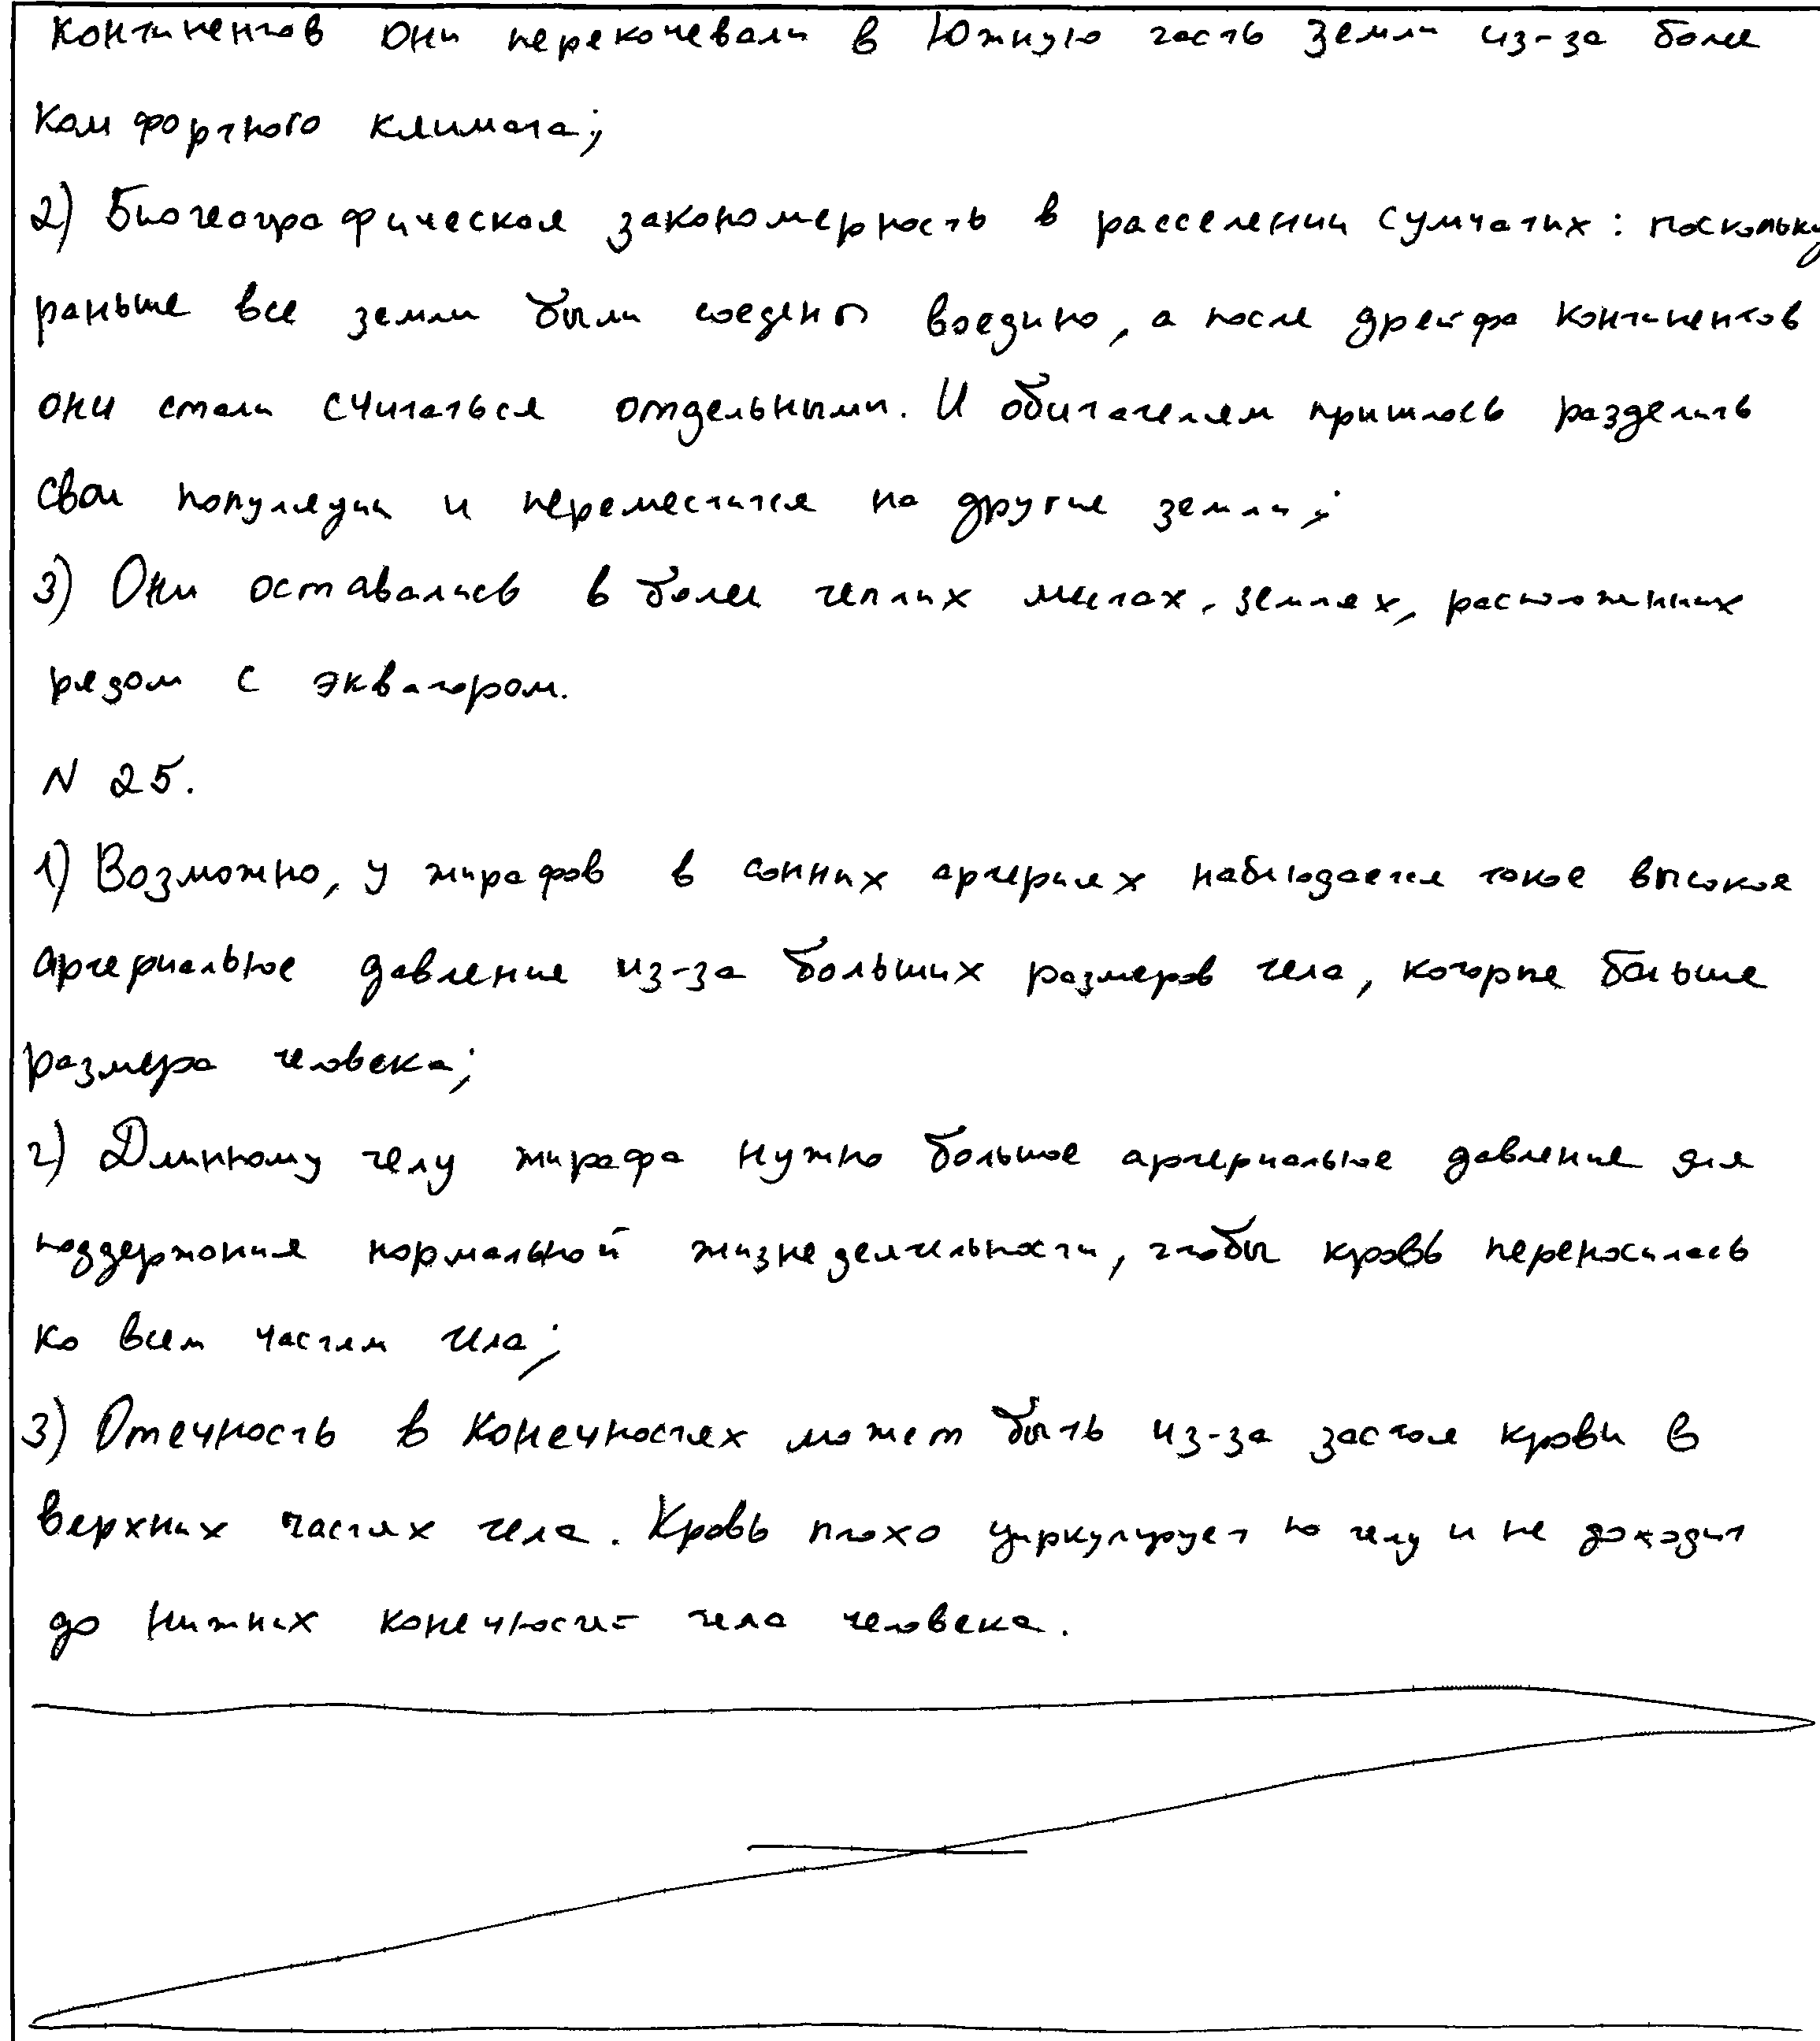 континентов они перекочевали в Южную часть Земли из-за более
комфортного климата;
2) Биогеографическая закономерность в расселении сумчатых: поскольку
раньше все земли были соедены воедино, а после дрейфа континентов
они стали считаться отдельными. И обитателям пришлось разделить
свои популяции и переместится на другие земли;
3) Они оставались в более теплых местах, землях, расположенных
рядом с экватором.
N 25.
1) Возможно, у жирафов в сонных артериях наблюдается такое высокое
артериальное давление из-за больших размеров тела, которые больше
размера человека;
2) Длинному телу жирафа нужно большое артериальное давление для
поддержания нормальной жизнедеятельности, чтобы кровь переносилась
ко всем частям тела;
3) Отечность в конечностях может быть из-за застоя крови в
верхних частях тела. Кровь плохо циркулирует по телу и не доходит
до нижних конечностей тела человека.